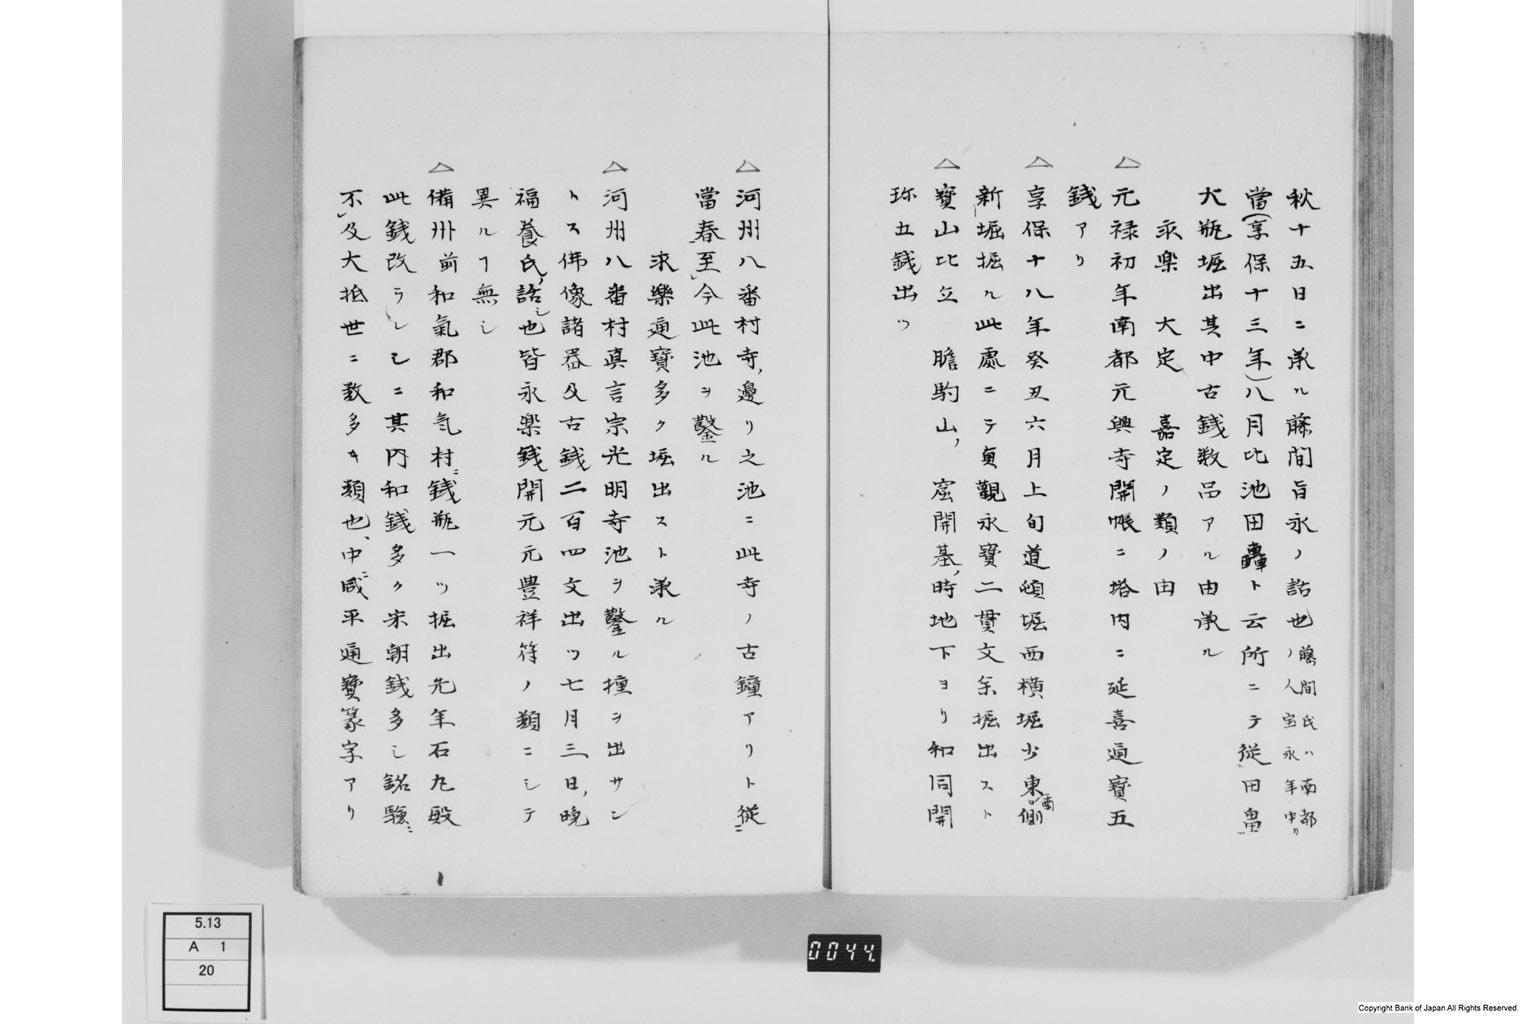 秋十五日ニ承ル藤間旨永ノ話也 藤間氏ハ南都ノ人宝永年中ノ
當(享保十三年)八月比池田轟ト云所ニテ従田畠
大瓶堀出其中古銭数品アル由承ル
永楽 大定 嘉定ノ類ノ由
△元禄初年南都元興寺開帳ニ塔内ニ延喜通寶五
銭アリ
△享保十八年癸丑六月上旬道頓堀西横堀少東南側
新堀掘ル此處ニテ貞觀永寶二貫文余掘出スト
△寶山比丘 膽駒山 窟開基時地下ヨリ和同開
珎五銭出ツ
△河州八番村寺邊リ之池ニ此寺ノ古鐘アリト従
當春至今此池ヲ鑿ル
永樂通寶多ク堀出スト承ル
△河州八番村真言宗光明寺池ヲ鑿ル撞ヲ出サン
トス佛像諸器及古銭二百四文出ツ七月三日晩
福養氏話也皆永楽銭開元元豊祥符ノ類ニシテ
異ルヿ無シ
△備州前和氣郡和気村ニ銭瓶一ツ掘出先年石丸殿
此銭改ラレシニ其内和銭多ク宋朝銭多シ銘驗ニ
不及大抵世ニ数多キ類也中ニ咸平通寶篆字アリ
5.13
A 1
20
0044.
Copyright Bank of Japan All Rights Reserved.